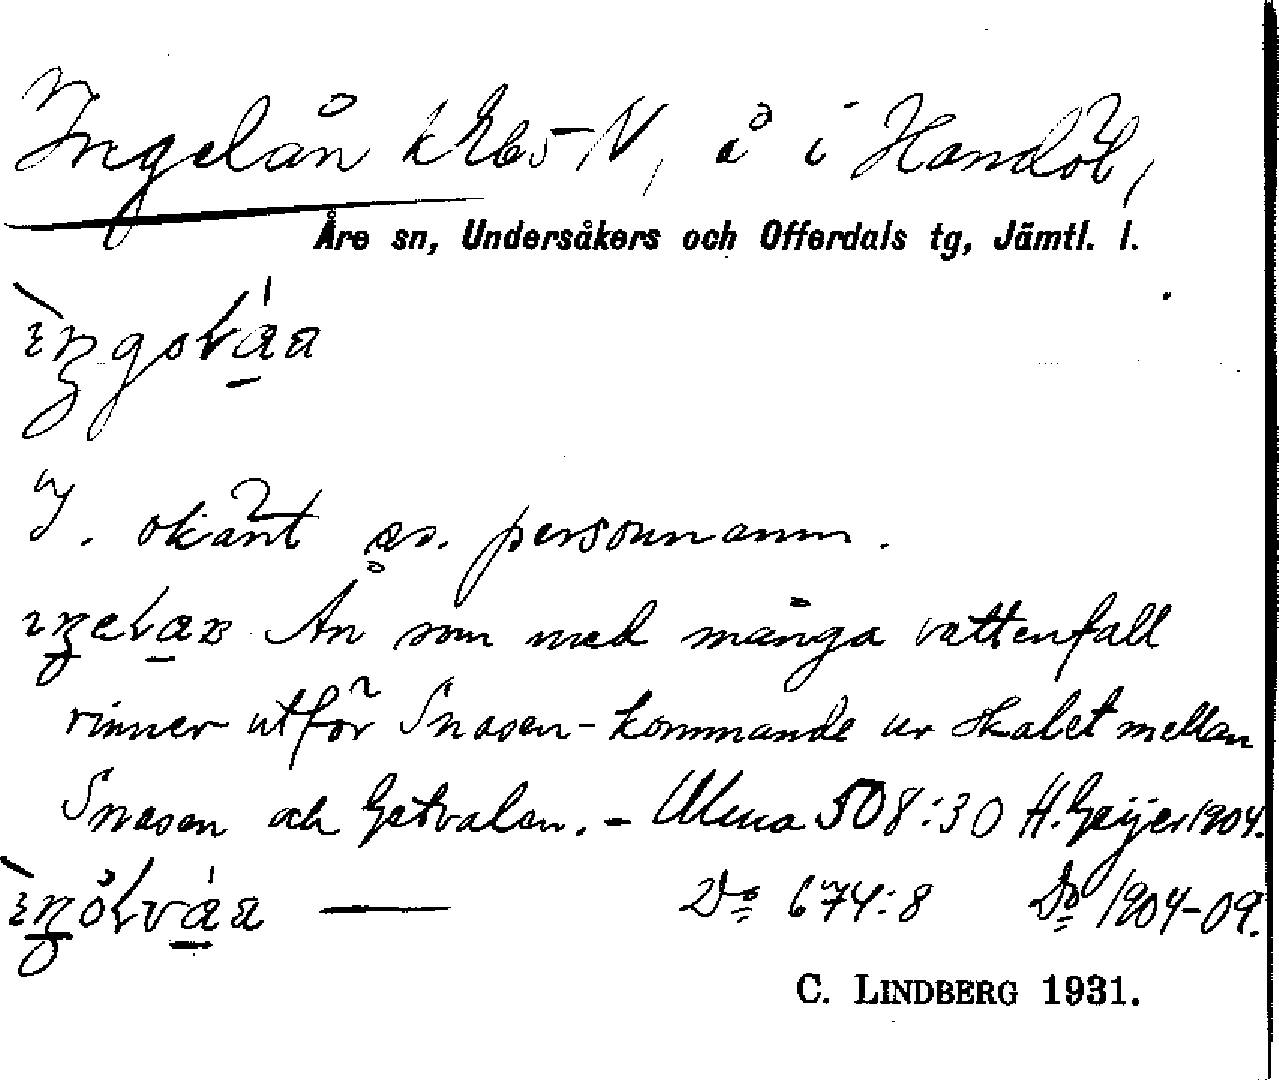 Ingelån k Eb5-N, å i Handöl,
Åre sn, Undersåkers och Offerdals tg, Jämtl. l.
okänt ss. personnamn.
Ån som med många vattenfall
rinner utför Snasen - kommande ur skalet mellan
Snasen och Getvalen. - Ulma 508:30 H. Geijer 1904.
— Do 674:8 Do 1904-09.
C. LINDBERG 1931.